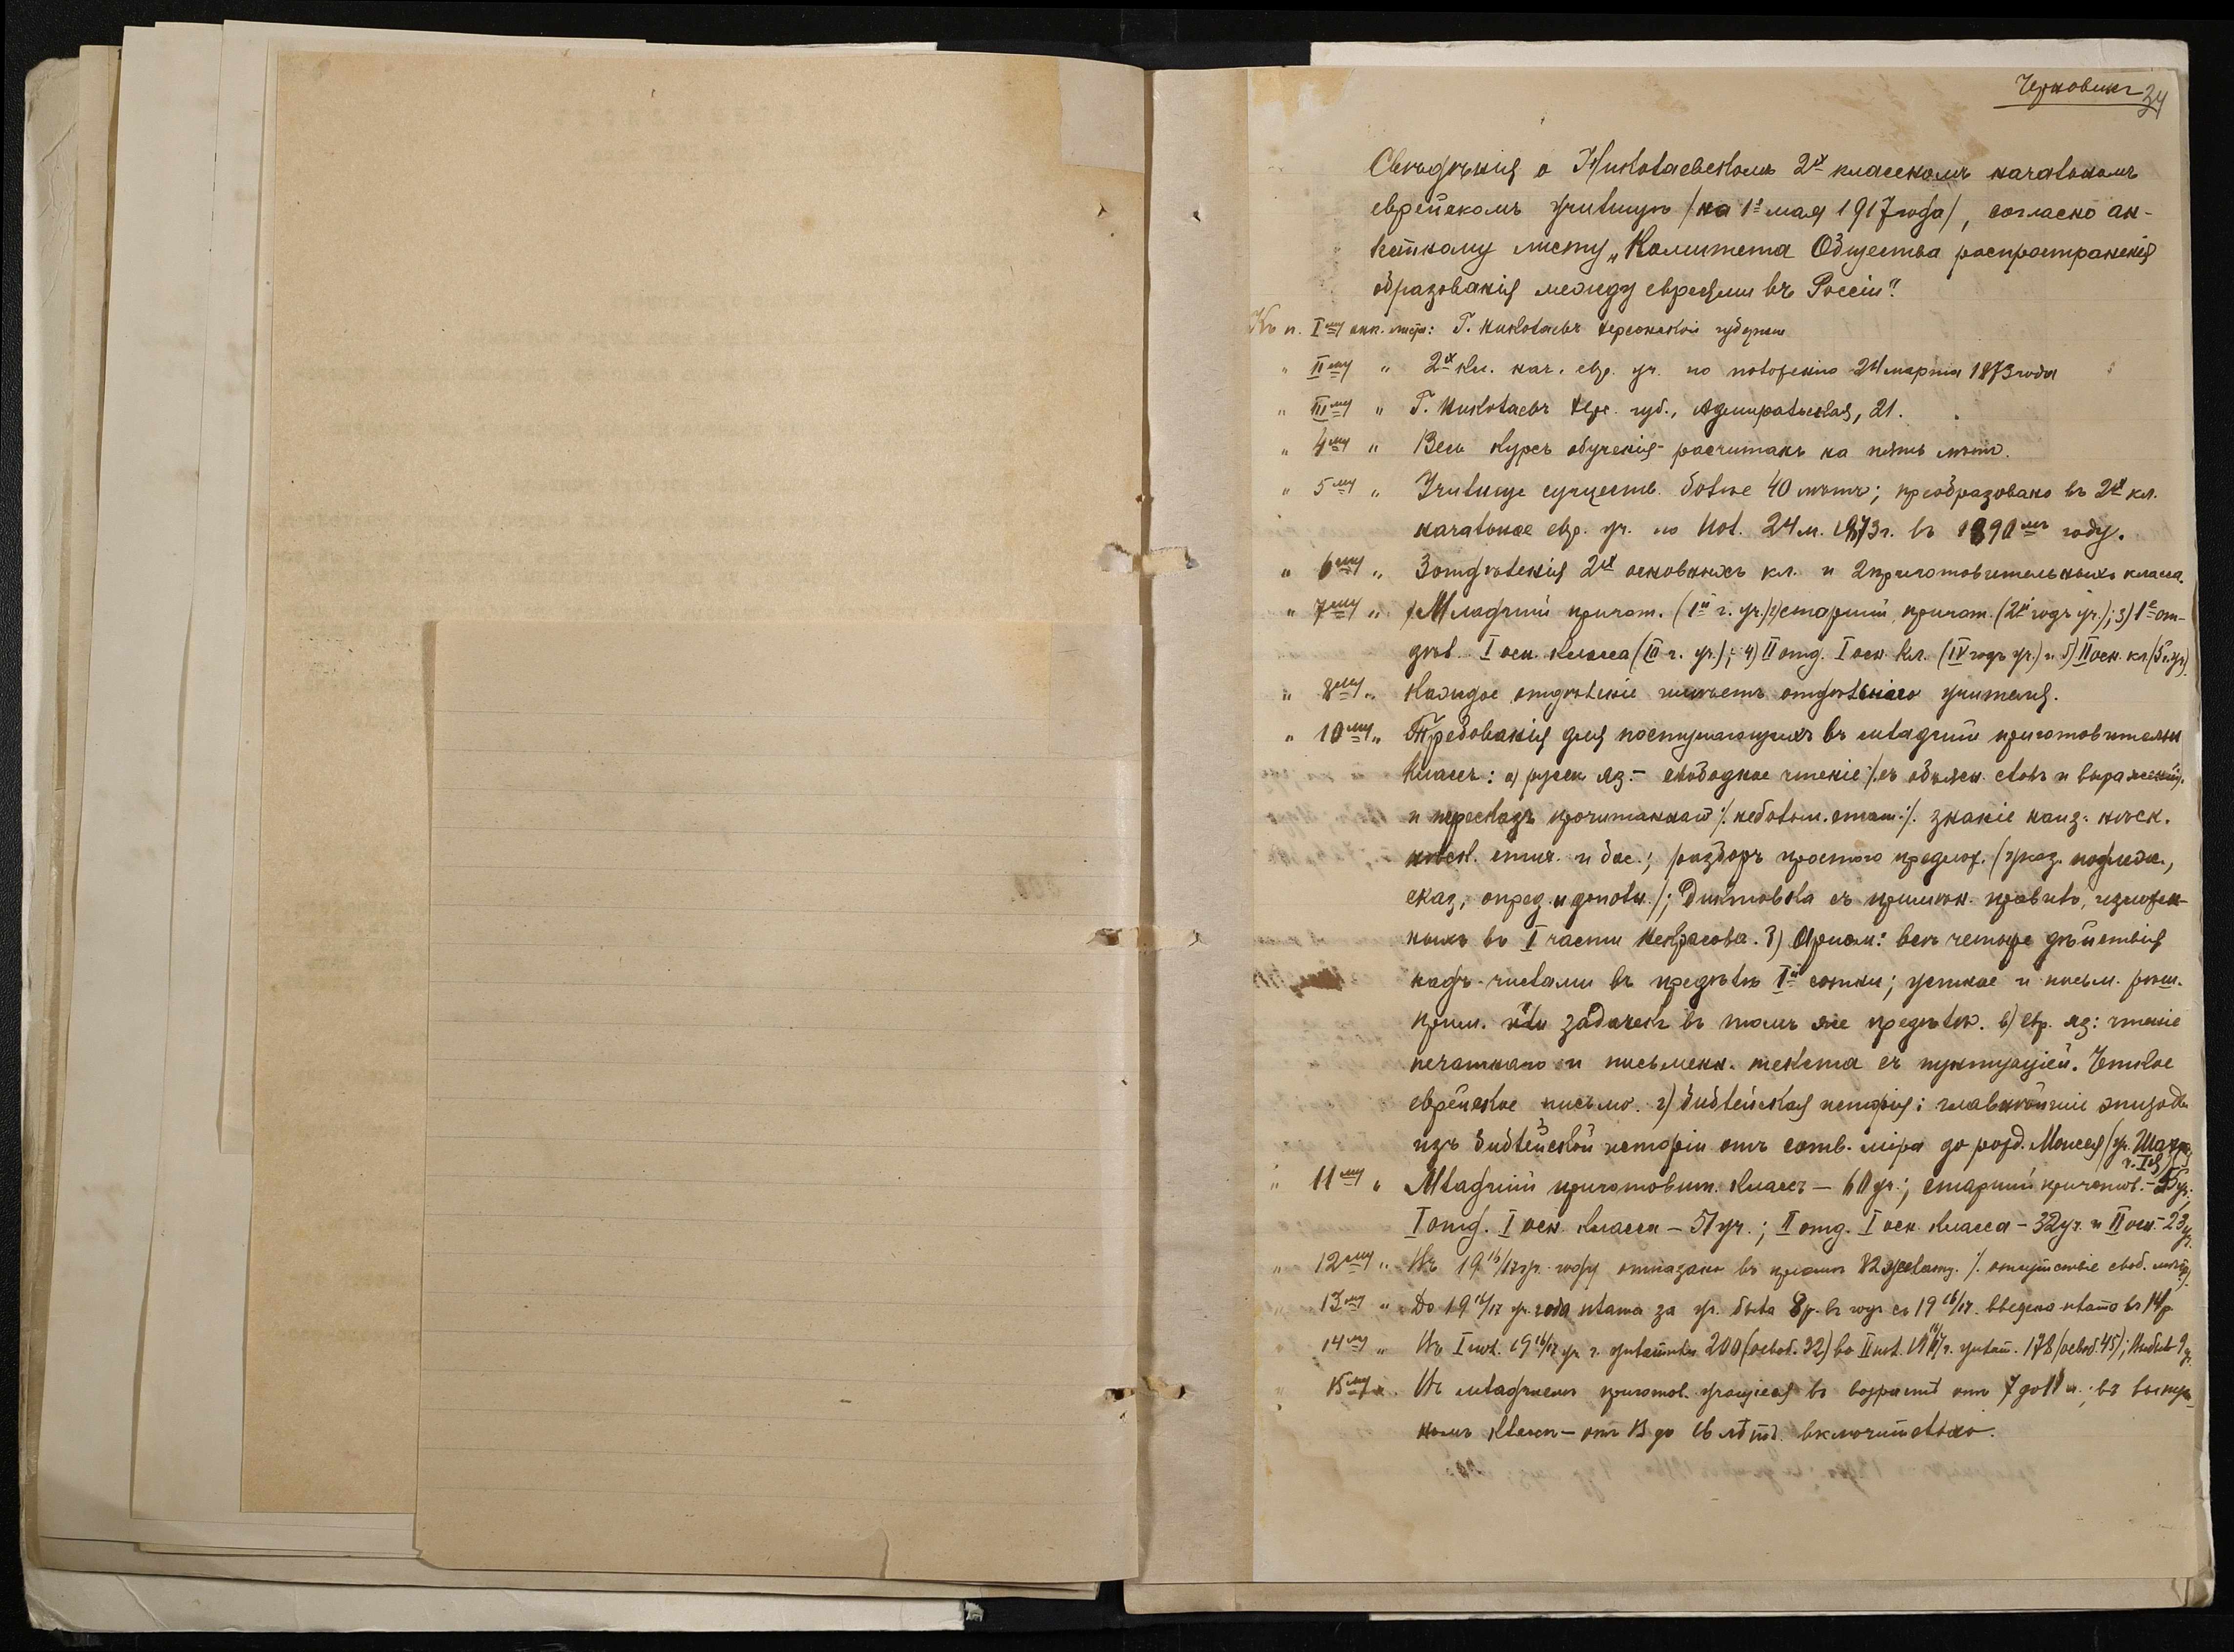 Черновикъ
34
Свѣдѣнія о Николаевскомъ 2х классномъ начальномъ
еврейскомъ училищѣ /на 1е мая 1917 года/, согласно ан-
кетному листу „Комитета Общества распространенія
образованія между евреями въ Россіи".
Къ п. Iму анк. листа: Г. Николаевъ Херсонской губерніи
" IIму " 2х кл. нач. евр. уч. по положенію 24 марта 1873 года
" IIIму " Г. Николаевъ Хер. губ., Адмиральская, 21.
" 4му " Весь курсъ обученія расчитанъ на пять лѣтъ.
" 5му " Училище существ. болѣе 40 лѣтъ; преобразовано въ 2х кл.
начальное евр. уч. по Пол. 24 м. 1873 г. въ 1890мъ году.
" 6му " 3 отдѣленія 2х основныхъ кл. и 2 приготовительныхъ класса.
" 7му " 1) Младшій пригот. (1й г. уч.) 2) старшій пригот. (2й годъ уч.); 3) 1е от-
дѣл. I осн. класса (III г. уч.); 4) II отд. I осн. кл. (IV годъ уч.) и 5) II осн. кл. (5 г. уч.)
" 8му " Каждое отдѣленіе имѣетъ отдѣльнаго учителя.
" 10му " Требованія для поступающихъ въ младшій приготовительн.
классъ: а) русск. яз. - свободное чтеніе /съ объясн. словъ и выраженій/.
и пересказъ прочитаннаго /.небольш. стат./. знаніе наиз. нѣск.
нѣск. стих. и бас.; разборъ простого предлож. (указ. подлеж.,
сказ., опред. и дополн.); Диктовка съ примѣн. правилъ, изложен-
ныхъ въ I части Некрасова. Б) Ариѳм: всѣ четыре дѣйствія
надъ числами въ предѣлѣ Iй сотни; устное и письм. рѣш.
прим. и задачекъ въ томъ же предѣлѣ. в) Евр. яз: чтеніе
печатнаго и письменн. текста съ пунктуаціей. Четкое
еврейское письмо. г) Библейская исторія: главнѣйшіе эпизоды
изъ Библейской исторіи отъ сотв. міра до рожд. Моисея (уч.
ч. Iя)
" 11му " Младшій приготовит. классъ — 60 уч.; старшій приготов. -
I отд. I осн. класса — 51 уч.; II отд. I осн. класса - 32 уч. и II осн. - 23 уч.
" 12му " Въ 19 16/17 уч. году отказано въ пріемѣ 82 желающ. /. отсутствіе своб. мѣстъ/.
" 13му " До 19 16/17 уч. года плата за уч. была 8 р. въ годъ съ 19 16/17. введена плата въ 14 р
14му " Въ I пол. 19 16/17 уч. г. уплатили 200 (освоб. 32) во II пол. 19 16/17 г. уплат. 178 (освоб. 45);
15му " Въ младшемъ пригот. учащіеся въ возрастѣ отъ 7 до 11 л.; въ выпуск-
номъ классѣ — отъ 13 до 16 лѣтъ включительно.